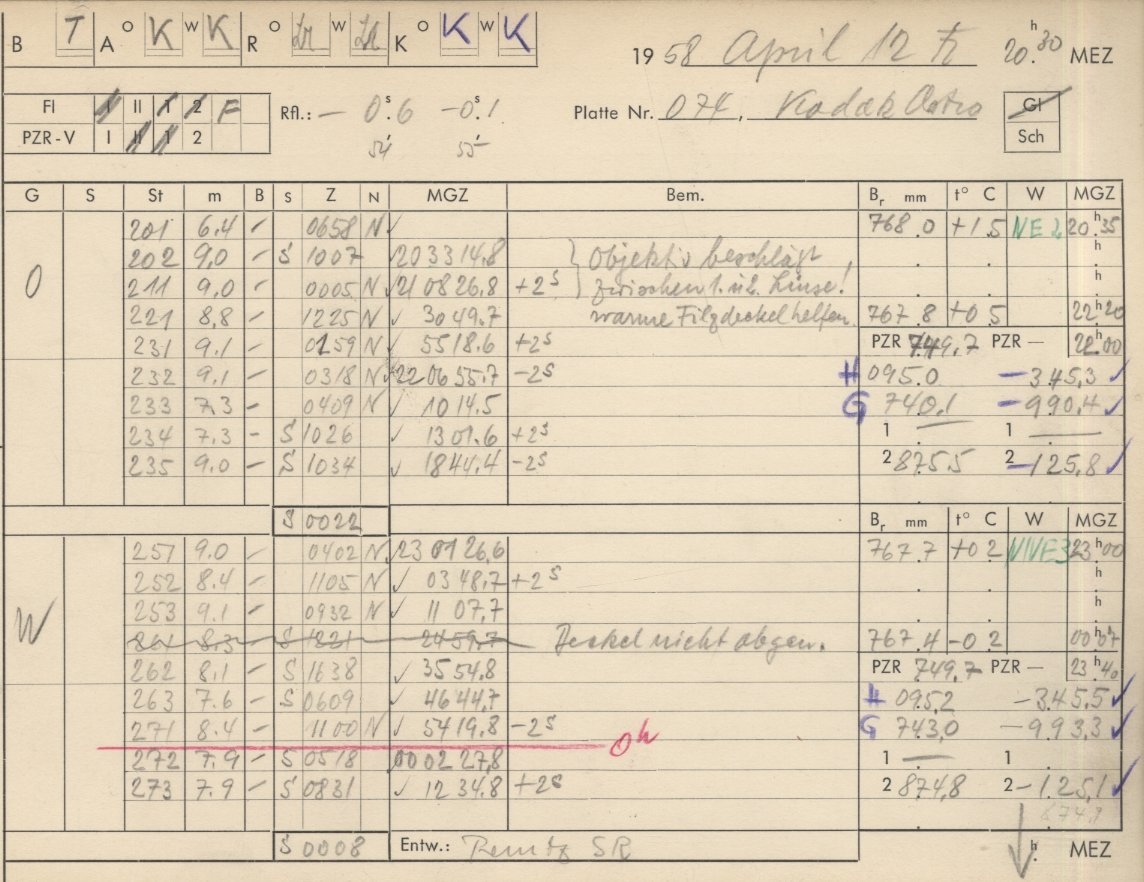 B T A O K W K R O W K O K W K 19 58 April 12 ♄ 20.h30 MEZ
FI I II 1 2 F
PZR-V I II 1 2
Rfl.: — 0.s6 —0.s1
54 55
Platte Nr. 074, Kodak Astro
Gl
Sch
G S St m B S Z N MGZ Bem. Br mm t° C W MGZ
O
201 6.4 – 0658 N ✓ 768.0 +1.5 NE 2 20.h35
202 9.0 – S 1007 ✓20 33 14.8 Objektiv beschlägt
211 9.0 – 0005 N ✓21 08 26.8 +2s zwischen 1. u. 2. Linse!
221 8.8 – 1225 N ✓ 30 49.7 warme Filzdeckel helfen. 767.8 +0.5 22h20
231 9.1 – 0159 N ✓ 55 18.6 +2s PZR 749.7 PZR — 22h00
232 9.1 – 0318 N ✓22 06 55.7 –2s H 095.0 –345.3 ✓
233 7.3 – 0409 N ✓ 10 14.5 G 740.1 –990.4 ✓
234 7.3 – S 1026 ✓ 13 01.6 +2s 1 — 1 —
235 9.0 – S 1034 ✓ 18 44.4 –2s 2 875.5 2 –125.8 ✓
S 0022 Br mm t° C W MGZ
W
251 9.0 – 0402 N 23 01 26.6 767.7 +0.2 NNE3 23h00
252 8.4 – 1105 N ✓ 03 48.7 +2s
253 9.1 – 0932 N ✓ 11 07.7
261 8.3 S 1821 24 59.7 Deckel nicht abgen. 767.4 –0.2 00h07
262 8.1 – S 1638 ✓ 35 54.8 PZR 749.7 PZR — 23h40
263 7.6 – S 0609 ✓ 46 44.7 H 095.2 –345.5 ✓
271 8.4 – 1100 N ✓ 54 19.8 –2s G 743.0 –993.3 ✓
0h
272 7.9 – S 0518 00 02 27.8 1 — 1
273 7.9 – S 0831 ✓ 12 34.8 +2s 2 874.8 2 –125.1 ✓
S 0008 Entw.: SR h MEZ